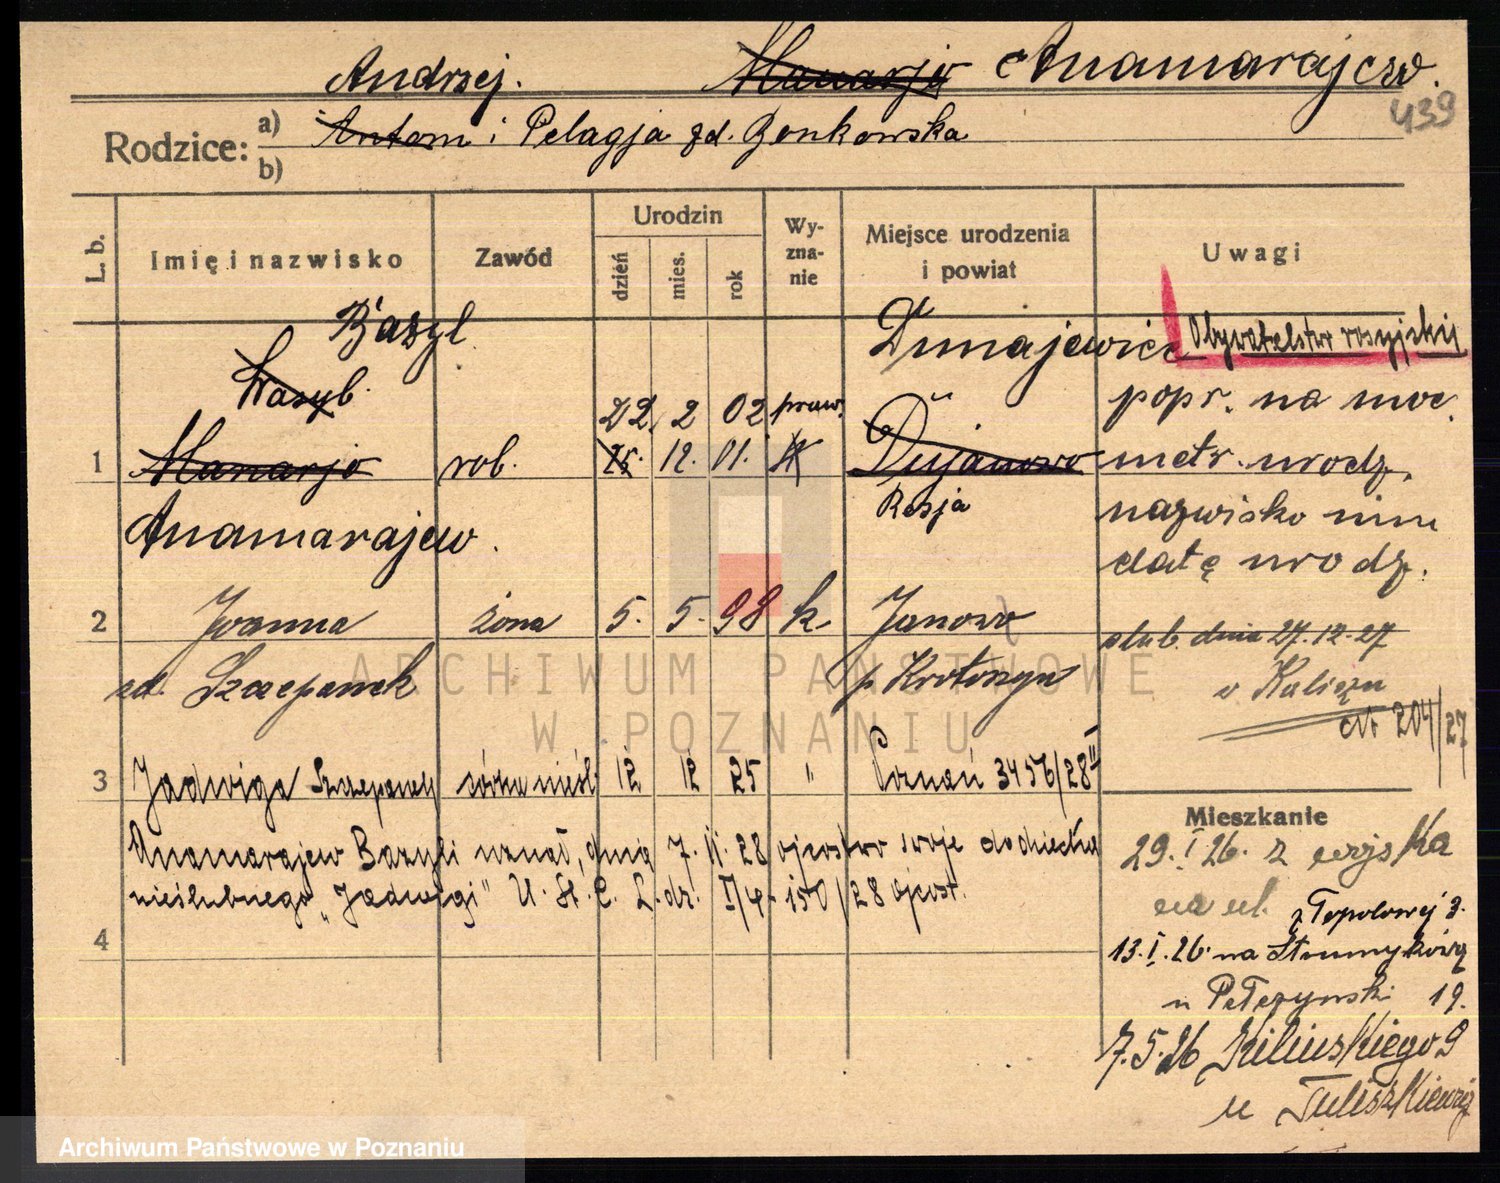 Andrzej. Manarjo Anamarajew.
439
Rodzice: a) Antom i Pelagja zd. Bonkowska
b)
L. b. Imię i nazwisko Zawód Urodzin dzień mies. rok Wy-zna-nie Miejsce urodzenia i powiat Uwagi
Bazyl Dunajewice Obywatelstw rosyjskie
Wasyb. 22. 2 02 praw. popr. na moc.
1 Manarjo rob. 25. 12. 01. k Dujanowo metr. urodz.
Anamarajew. Rosja nazwisko imię
datę urodz.
2 Joanna żona 5. 5. 98 k Janowo ślub. dnia 27.12.27
zd. Szczepanek p. Krotoszyn w Kaliszu
ct 204/27
3 Jadwiga Szczepanek córka nieśl 12 12 25 " Poznań 3456/28 II
Anamarajew Bazyli uznał, dnia 7. II. 28 ojcostwo swoje do dziecka
nieślubnego „Jadwigi" U. St. C. L. dz. I/4-150/28 ojcost.
4
Mieszkanie
29. I 26. z wojska
na ul.
z Topolowej 3.
13. I. 26. na Strumykową
u Pełczynski 19.
7.5.26 Kilińskiego 9
u Tuliszkiewicz
ARCHIWUM PAŃSTWOWE
W POZNANIU
Archiwum Państwowe w Poznaniu